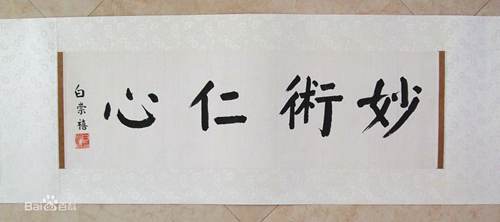 妙術仁心
白崇禧
Baidu百科